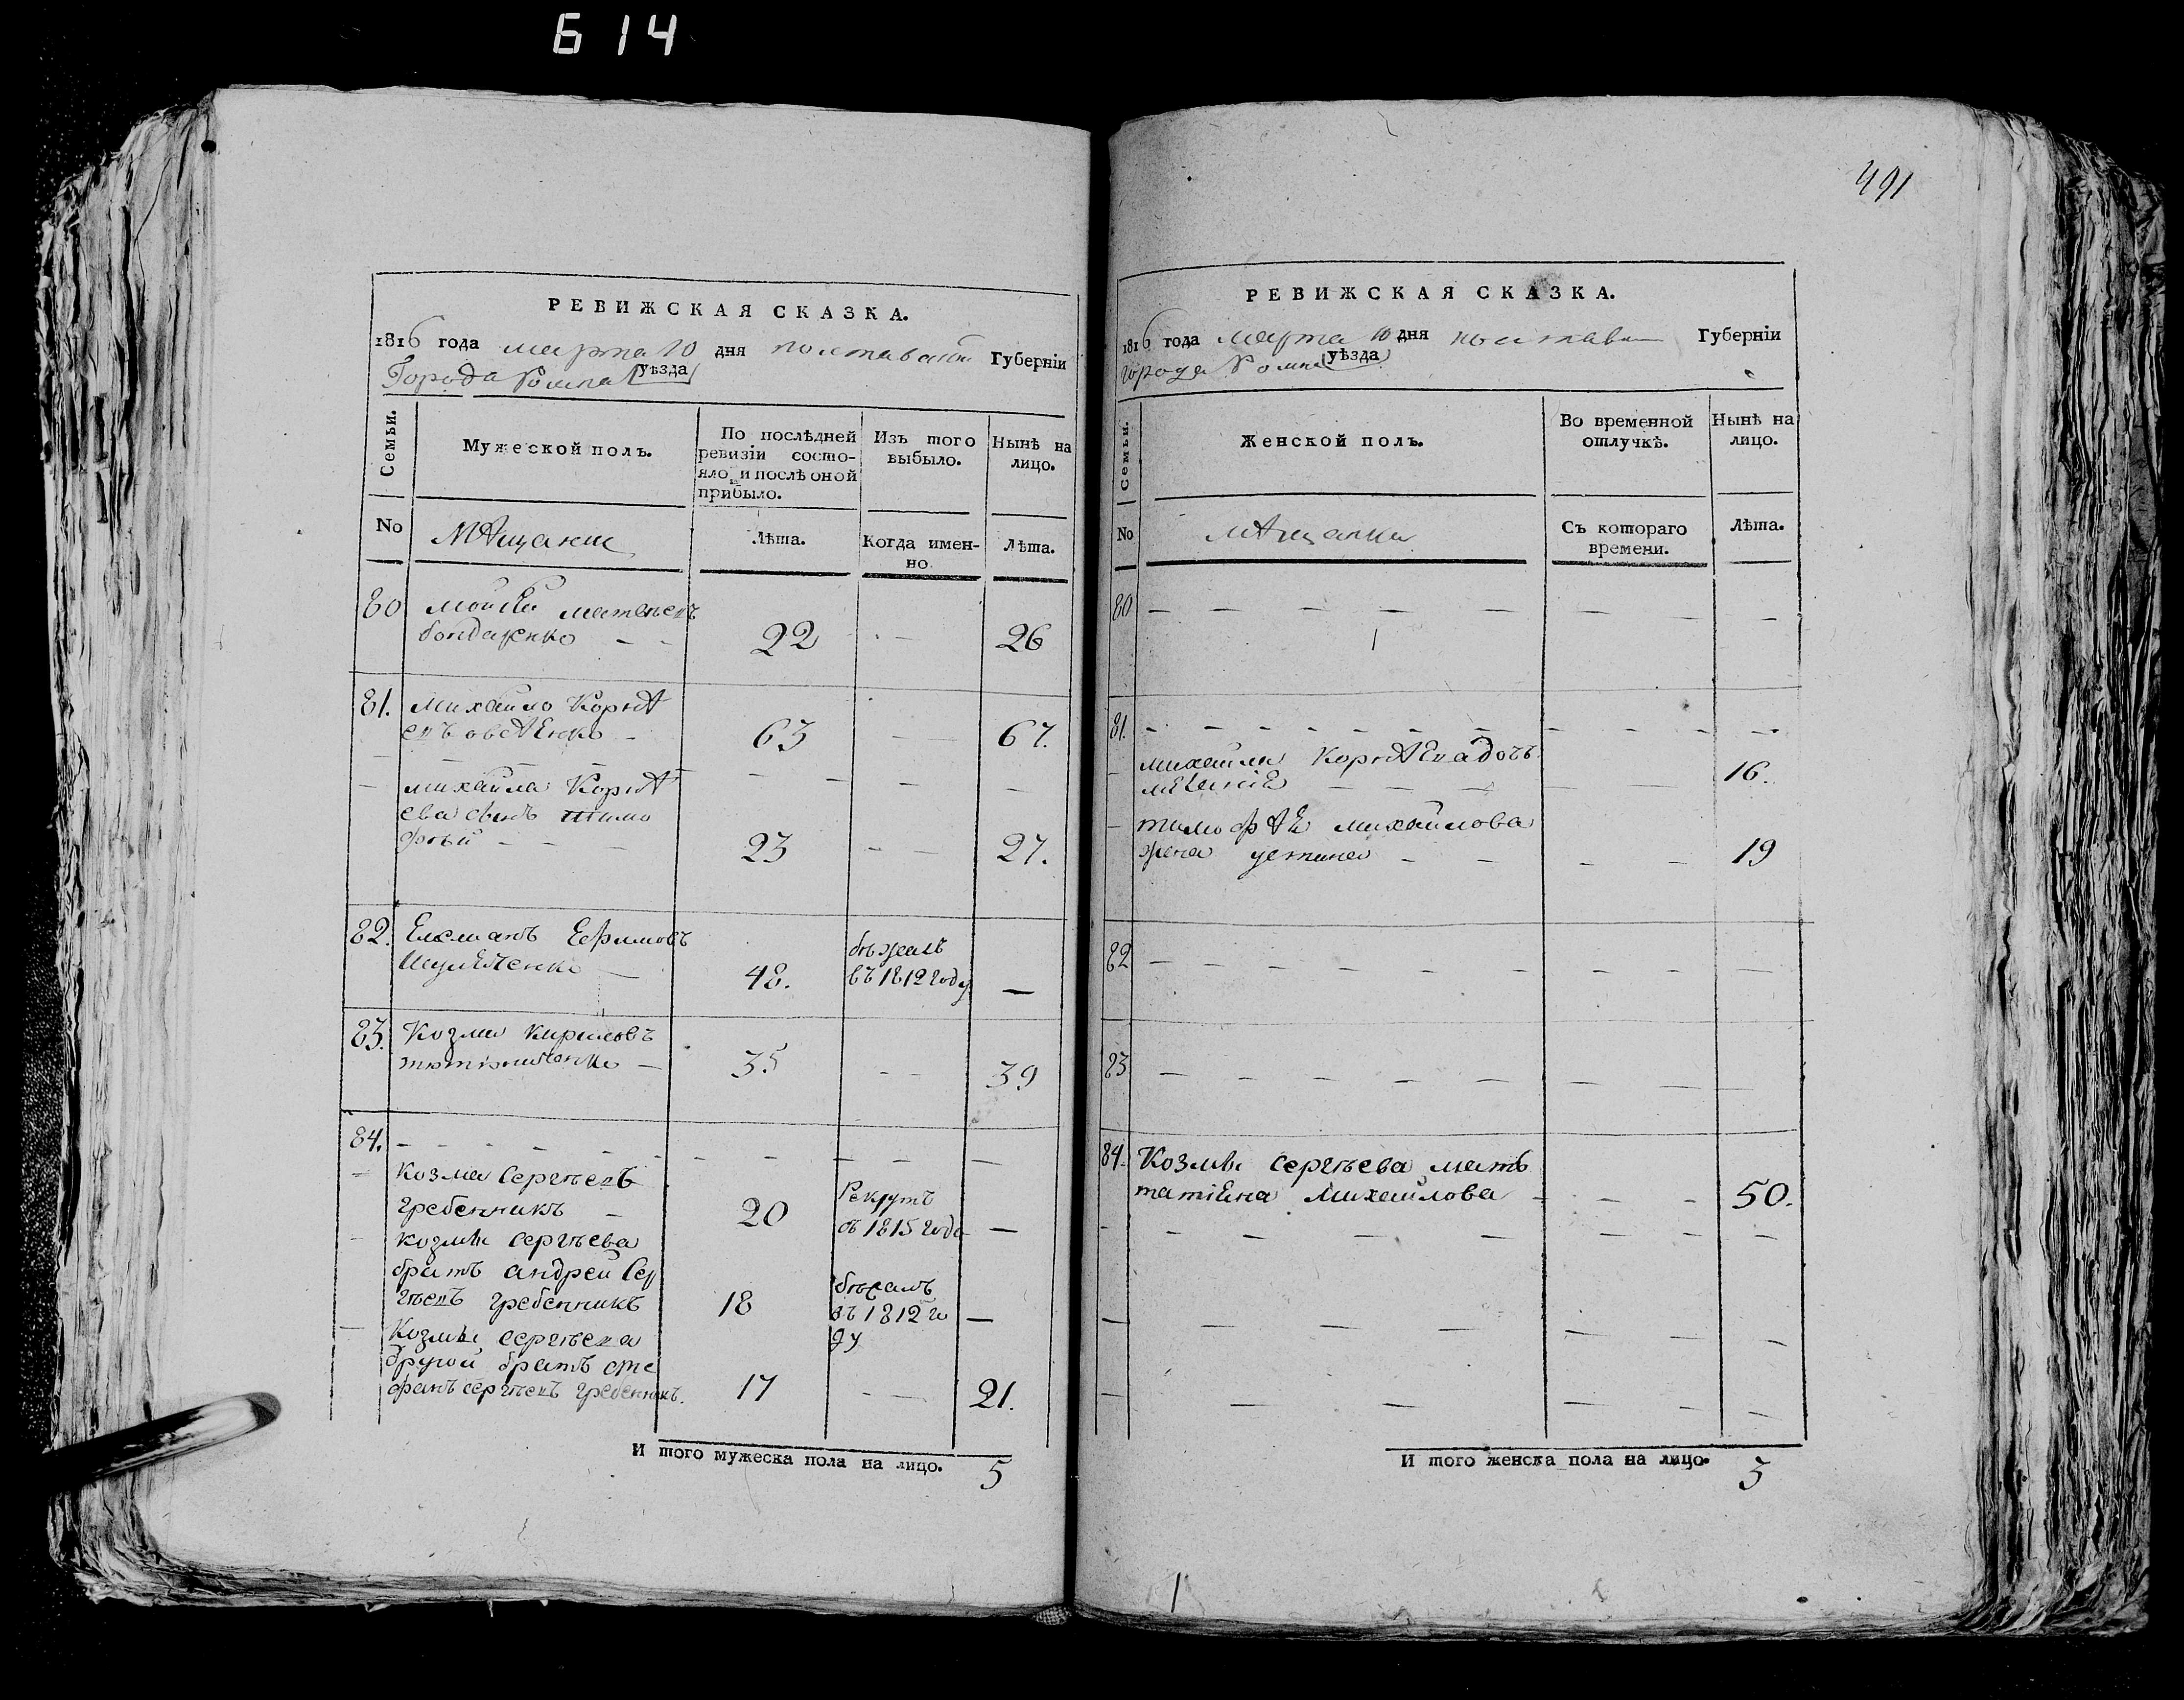 614
РЕВИЖСКАЯ СКАЗКА.
1816 года марта 10 дня полтавской Губерніи
Города Ромна уѣзда
Семьи.
Мужеской полъ.
По послѣдней ревизіи состояло, и послѣ оной прибыло.
Изъ того выбыло.
Нынѣ на лицо.
No
Мѣщане
Лѣта.
Когда именно
Лѣта.
80 Мойсей Матвеевъ
бондаренко - - 22 - 26
81. Михайло Корнѣ
евъ овсѣенко - 63 - 67.
михайла Корнѣ
ева сынъ тимо
фѣй - - 23 - - 27.
82. Ефимовъ
48. бѣжалъ
въ 1812 году —
83. Козма Кириловъ
35 - - 39
84. - - - - -
Козма Сергѣевъ
гребенникъ - 20 Рекрутъ
съ 1815 года —
козмы сергѣева
братъ андрей Сер
гѣевъ гребенникъ 18 бѣжалъ
въ 1812 го
ду —
Козмы сергѣева
другой братъ сте
фанъ сергѣевъ гребенникъ. 17 - - 21.
И того мужеска пола на лицо. 5
491
РЕВИЖСКАЯ СКАЗКА.
1816 года марта 10 дня Губерніи
города Ромна уѣзда
Семьи.
Женской полъ.
Во временной отлучкѣ.
Нынѣ на лицо.
No
мѣщанки
Съ котораго времени.
Лѣта.
80 - - - - -
81. - - - - -
михайлы Корнѣева дочь
16.
тимофѣя михайлова
жена устина - - - 19
82 - - - - -
83 - - - - -
84. Козмы сергѣева мать
татіяна Михайлова - - - 50.
И того женска пола на лицо. 3